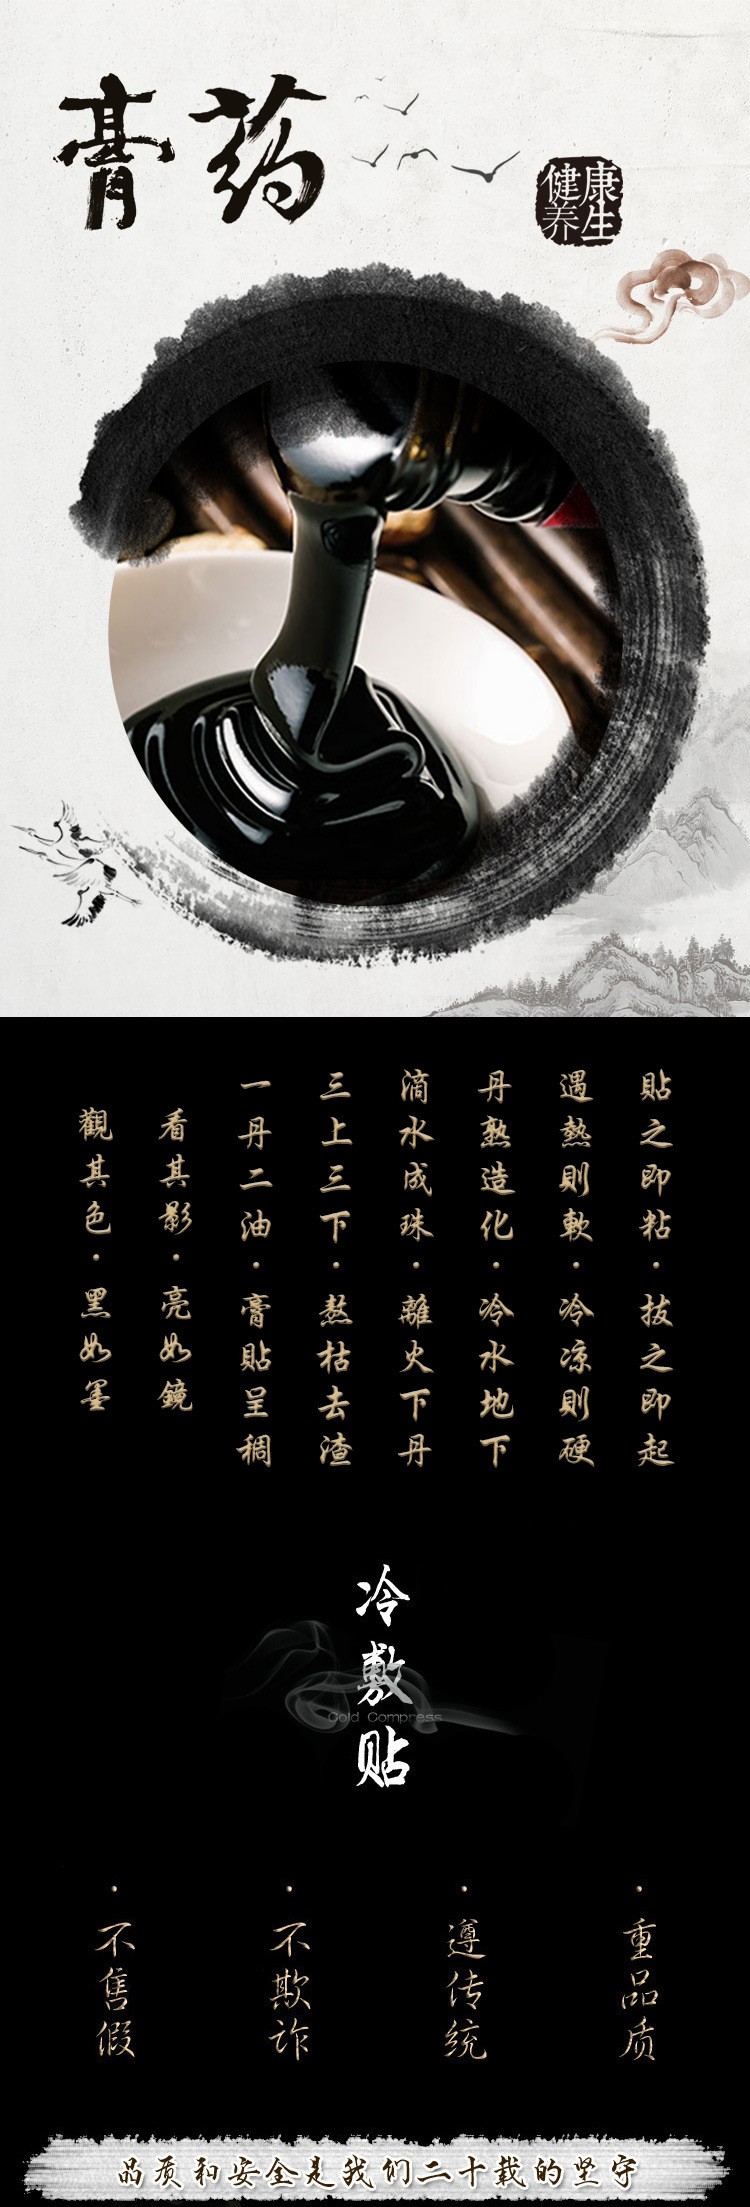 膏药
健康
养生
貼之即粘·拔之即起
遇熱則軟·冷凉則硬
丹熟造化·冷水地下
滴水成珠·離火下丹
三上三下·熬枯去渣
一丹二油·膏貼呈稠
看其影·亮如鏡
觀其色·黑如墨
冷敷贴
Cold Compress
·重品质
·遵传统
·不欺诈
·不售假
品质和安全是我们二十载的坚守